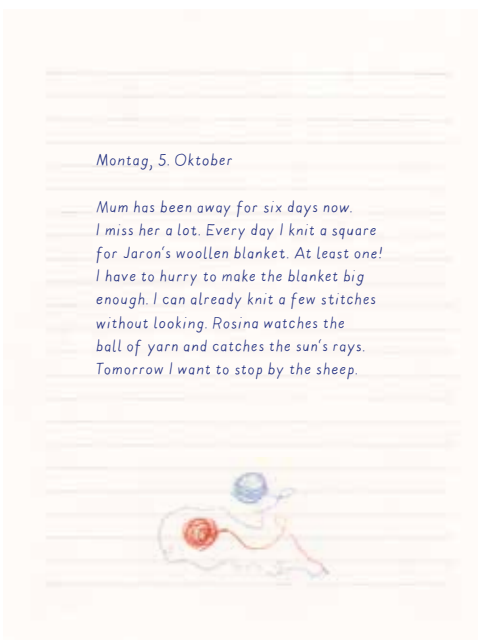 Montag, 5. Oktober
Mum has been away for six days now.
I miss her a lot. Every day I knit a square
for Jaron's woollen blanket. At least one!
I have to hurry to make the blanket big
enough. I can already knit a few stitches
without looking. Rosina watches the
ball of yarn and catches the sun's rays.
Tomorrow I want to stop by the sheep.